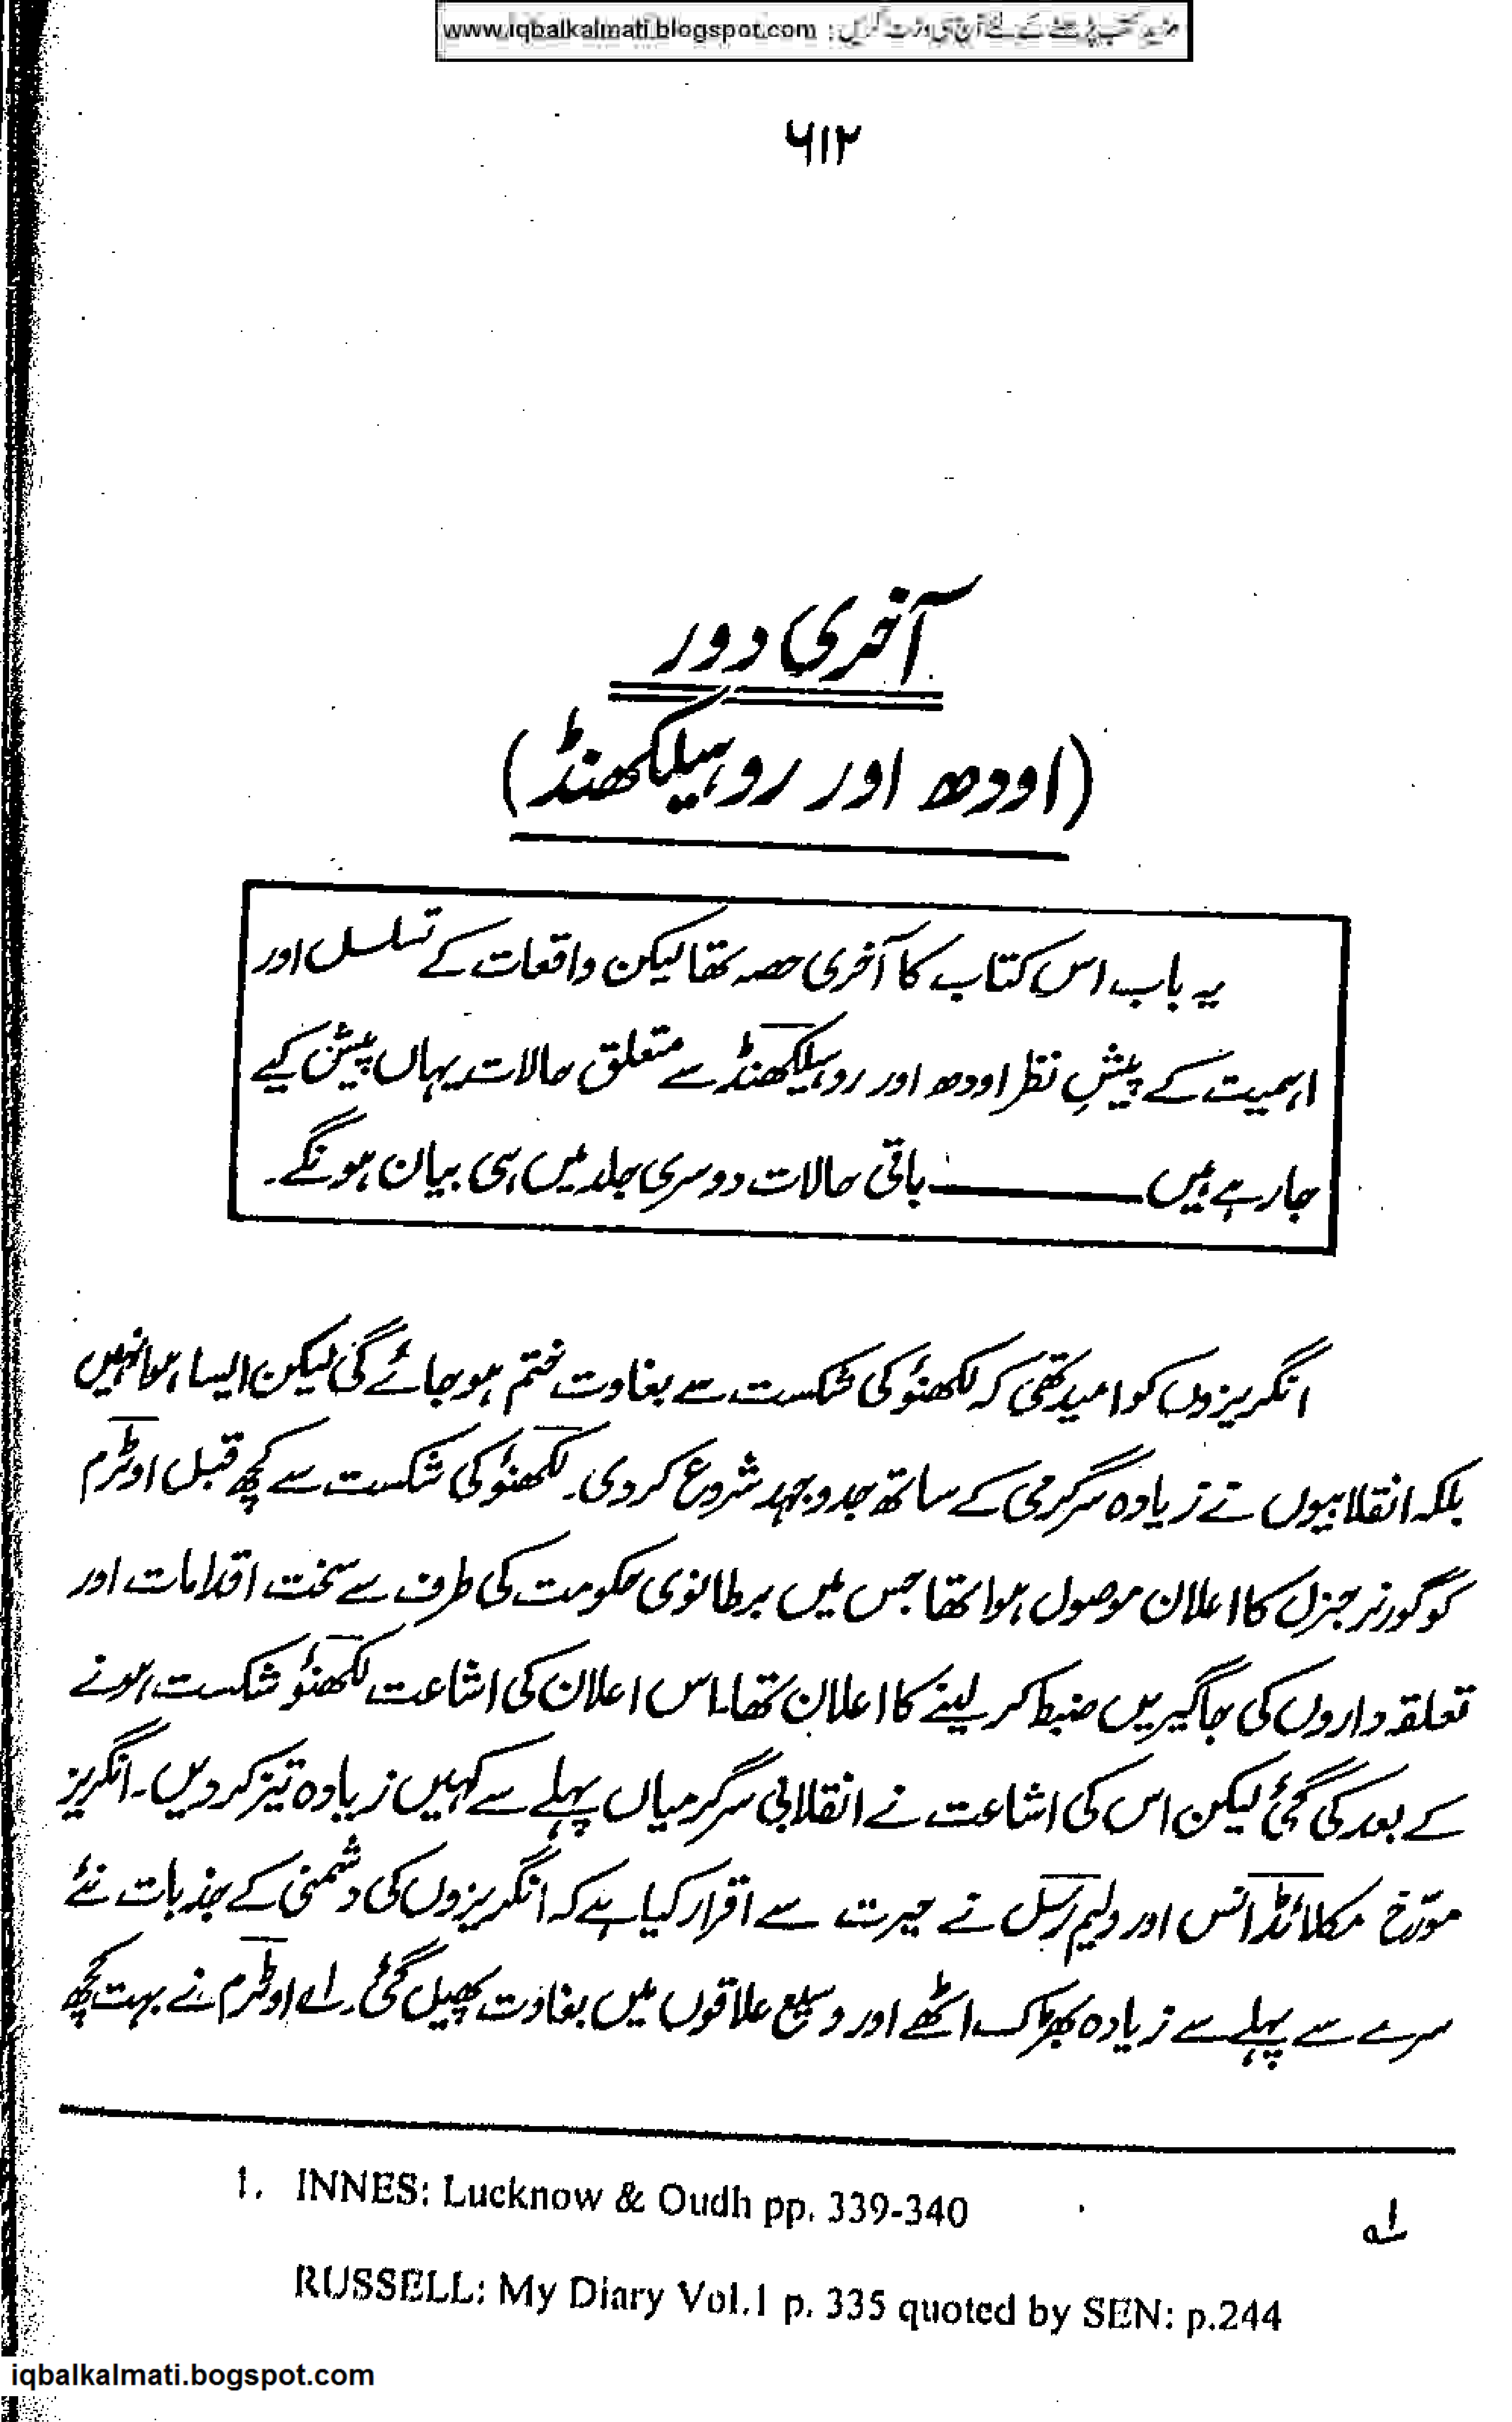 www.iqbalkalmati.blogspot.com : مزید کتب پڑھنے کے لئے آج ہی وزٹ کریں
۶۱۲
آخری دور
(اودھ اور روہیلکھنڈ)
یہ باب اس کتاب کا آخری حصہ تھا لیکن واقعات کے تسلسل اور
اہمیت کے پیشِ نظر اودھ اور روہیلکھنڈ سے متعلق حالات یہاں پیش کیے
جا رہے ہیں ——— باقی حالات دوسری جلد میں ہی بیان ہونگے۔
انگریزوں کو امید تھی کہ لکھنؤ کی شکست سے بغاوت ختم ہو جائے گی لیکن ایسا ہوا نہیں
بلکہ انقلابیوں نے زیادہ سرگرمی کے ساتھ جدوجہد شروع کر دی۔ لکھنؤ کی شکست سے کچھ قبل اوٹرم
کو گورنر جنرل کا اعلان موصول ہوا تھا جس میں برطانوی حکومت کی طرف سے سخت اقدامات اور
تعلقہ داروں کی جاگیریں ضبط کر لینے کا اعلان تھا۔ اس اعلان کی اشاعت لکھنؤ شکست ہونے
کے بعد کی گئی لیکن اس کی اشاعت نے انقلابی سرگرمیاں پہلے سے کہیں زیادہ تیز کر دیں۔ انگریز
مورّخ مکلائڈ انس اور ولیم رسل نے حیرت سے اقرار کیا ہے کہ انگریزوں کی دشمنی کے جذبات نئے
سرے سے پہلے سے زیادہ بھڑک اٹھے اور وسیع علاقوں میں بغاوت پھیل گئی۔ ۱ے اوٹرم نے بہت کچھ
1. INNES: Lucknow & Oudh pp. 339-340
۱ے
RUSSELL: My Diary Vol.I p. 335 quoted by SEN: p.244
iqbalkalmati.bogspot.com